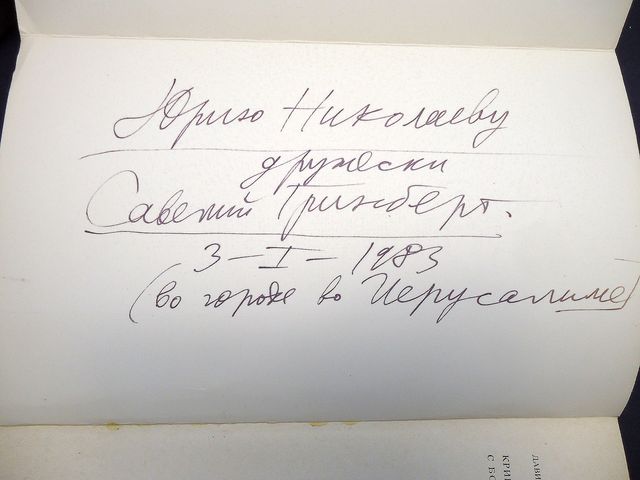 Юрию Николаеву
дружески
Савелий Гринберг.
3-I-1983
(во городе во Иерусалиме)
ДАВИ
КРИ
С БО